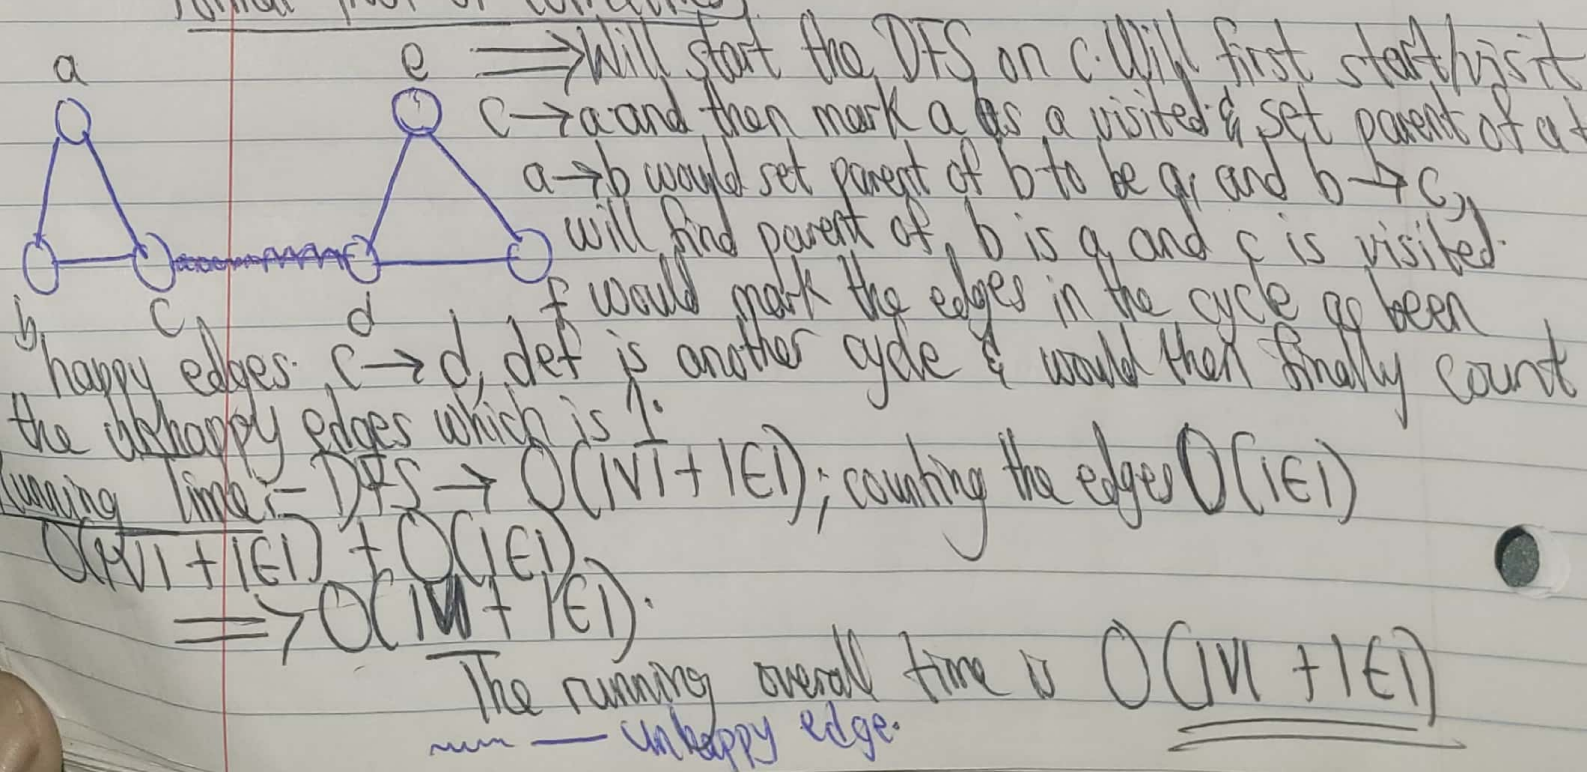 a
e
⟹ Will start the DFS on c. Will first start/visit
c → a and then mark a as a visited & set parent of a t
a → b would set parent of b to be a, and b → c,
will find parent of b is a and c is visited.
f would mark the edges in the cycle as been
b c d
happy edges. c → d, def is another cycle & would then finally count
the unhappy edges which is 1.
Running Time:- DFS → O(|V| + |E|); counting the edges O(|E|)
O(|V| + |E|) + O(|E|).
⟹ O(|V| + |E|).
The running overall time is O(|V| + |E|)
~~~ — unhappy edge.